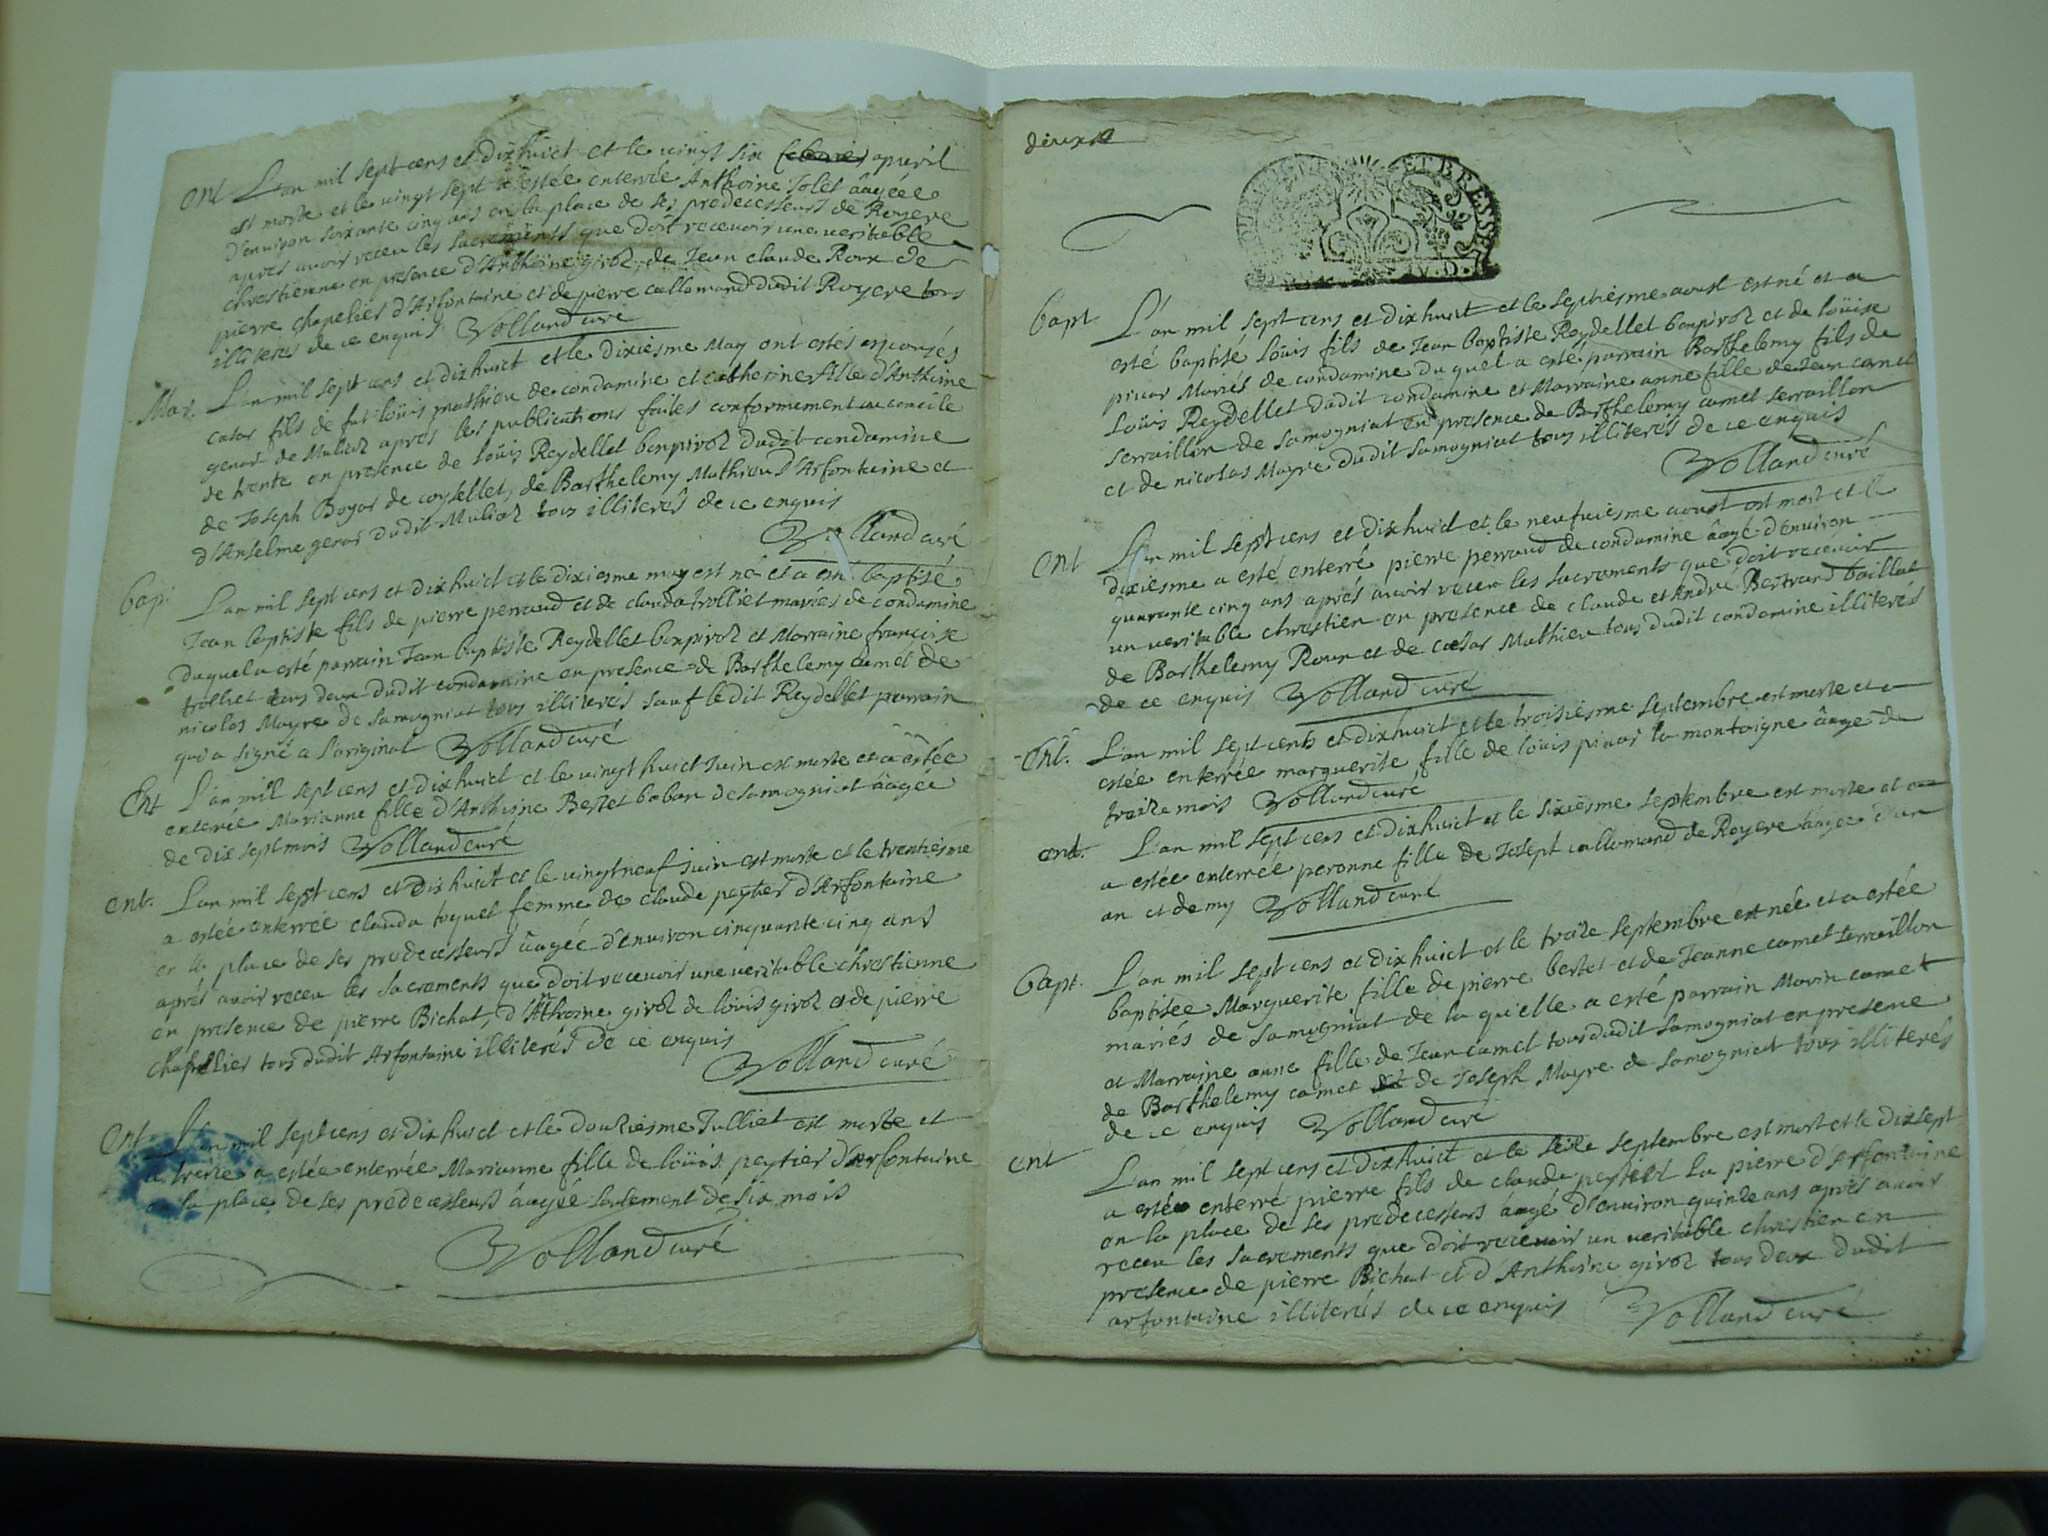 Ent L'an mil sept cens et dixhuict et le vingt six apuril
est morte et le vingt sept a estée enterrée Anthoine Jolet âagée
d'enuiron soixante cinq ans en la place de ses predecesseurs de Royere
apres auoir receu les sacrements que doit receuoir une veritable
chrestienne en presence d'Anthoine girod, de Jean claude Roux de
pierre chapelier d'Arfontaine et de pierre callomand dudit Royere tous
illiterés de ce enquis Volland curé
Mar. L'an mil sept cens et dixhuict et le dixiesme May ont estés espousés
cesar fils de fut loüis mathieu de condamine et catherine fille d'Anthoine
genod de Muliod apres les publications faites conformement au concile
de trente en presence de loüis Reydellet bonpivod dudit condamine
de Joseph Boyer de coysellet, de Barthelemy Mathieu d'Arfontaine et
d'Anselme genod dudit Muliod tous illiterés de ce enquis
Volland curé
bap. L'an mil sept cens et dixhuict et le dixiesme may est né et a esté baptisé
Jean baptiste fils de pierre perraud et de clauda trolliet mariés de condamine
duquel a esté parrain Jean baptiste Reydellet bonpivod et Marraine francoise
trolliet tous deux dudit condamine en presence de Barthelemy camet de
nicolas Mayre de samogniat tous illiterés sauf ledit Reydellet parrain
qui a signé a l'original Volland curé
Ent L'an mil sept cens et dixhuict et le uingt huict Juin est morte et a estée
enterrée Marianne fille d'Anthoine Bertet baban de samogniat âagée
de dix sept mois Volland curé
ent. L'an mil sept cens et dixhuict et le uingt neuf Juin est morte et le trentiesme
a estée enterrée clauda toquet femme de claude peytier d'Arfontaine
en la place de ses predecesseurs âagée d'enuiron cinquante cinq ans
aprés auoir receu les sacrements que doit receuoir une veritable chrestienne
en presence de pierre Bichat, d'Anthoine girod de loüis girod et de pierre
chapellier tous dudit Arfontaine illiterés de ce enquis
Volland curé
Ent L'an mil sept cens et dixhuict et le douziesme Julliet est morte et
a treize a estée enterrée Marianne fille de loüis peytier d'Arfontaine
en la place de ses predecesseurs âagée seulement de six mois
Volland curé
deuxe
ET BRESSE
bapt L'an mil sept cens et dixhuict et le septiesme aoust est né et a
esté baptisé loüis fils de Jean baptiste Reydellet bonpivod et de loüise
pinar Mariés de condamine duquel a esté parrain Barthelemy fils de
Loüis Reydellet dudit condamine et Marraine anne fille de Jean camet
serraillon de samogniat en presence de Barthelemy camet serraillon
et de nicolas Mayre dudit samogniat tous illiterés de ce enquis
Volland curé
Ent L'an mil sept cens et dixhuict et le neufuiesme aoust est mort et le
dixiesme a esté enterré pierre perraud de condamine âagé d'enuiron
quarante cinq ans aprés auoir receu les sacraments que doit receuoir
un veritable chrestien en presence de claude et André Bertrand baillat
de Barthelemy Roux et de cesar Mathieu tous dudit condamine illiterés
de ce enquis Volland curé
Ent. L'an mil sept cents et dixhuict et le troisiesme septembre est morte et a
estée enterrée marguerite fille de loüis pinar la montaigne âage de
traize mois Volland curé
ent. L'an mil sept cens et dixhuict et le sixiesme septembre est morte et a
a estée enterrée peronne fille de Josept callomand de Royere âagée d'un
an et demy Volland curé
bapt. L'an mil sept cens et dixhuict et le traize septembre est née et a estée
baptisée Marguerite fille de pierre bertet et de Jeanne camet serraillon
mariés de samogniat de la qu'elle a esté parrain Marin camet
et Marraine anne fille de Jean camet tous dudit samogniat en presence
de Barthelemy camet de Joseph Mayre de samogniat tous illiterés
de ce enquis Volland curé
ent L'an mil sept cens et dixhuict et le seize septembre est mort et le dixsept
a esté enterré pierre fils de claude peytier la pierre d'Arfontaine
en la place de ses predecesseurs âagé d'enuiron quinze ans aprés auoir
receu les sacrements que doit receuoir un veritable chrestien en
presence de pierre Bichat et d'Anthoine girod tous deux dudit
arfontaine illiterés de ce enquis Volland curé